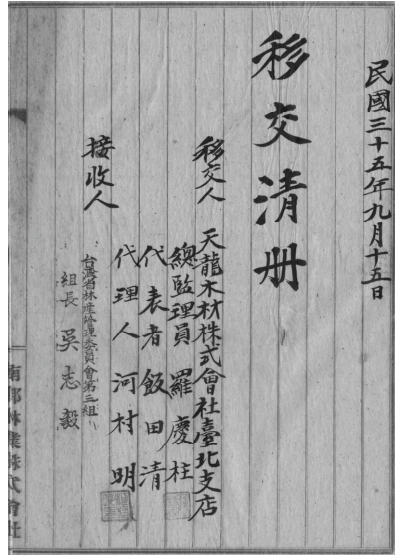 民國三十五年九月十五日
移交清册
移交人
天龍木材株式會社臺北支店
總監理員 羅慶柱
代表者 飯田清
代理人 河村明
接收人
台灣省林產管理委員會第三組
組長 吳志毅
南部林業株式會社